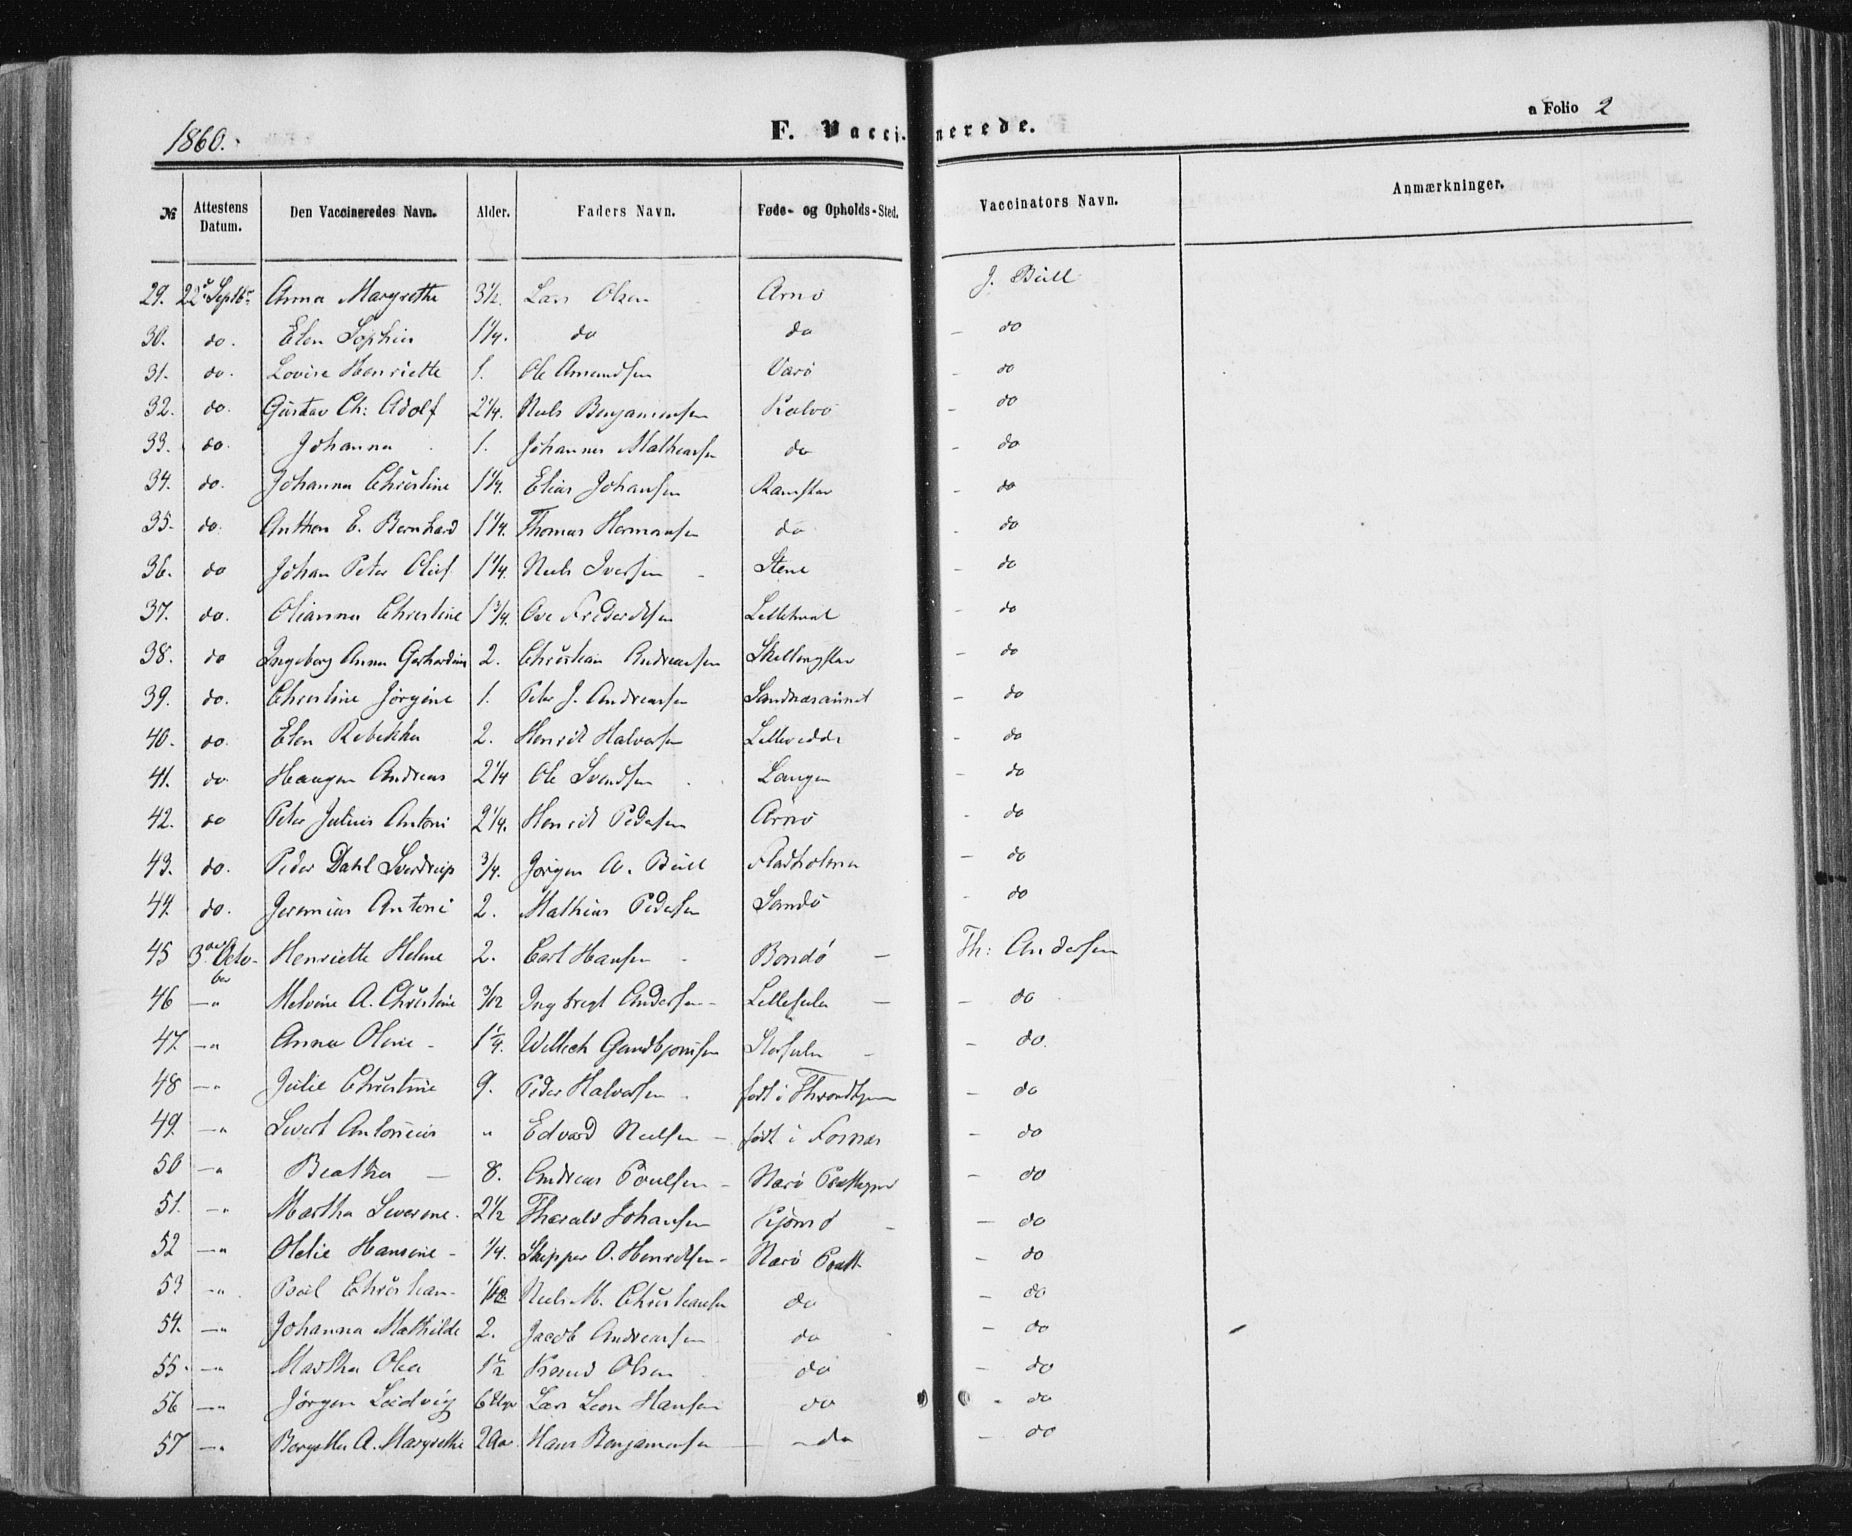 1860. F. Vaccinerede. a Folio 2
№ Attestens Datum. Den Vaccineredes Navn. Alder. Faders Navn. Føde- og Opholds-Sted. Vaccinators Navn. Anmærkninger.
29. 22de Septbr Anna Margrethe 3½. Lars Olsen Arnø J. Bull
30. do. Elen Sophie 1¼. do do – do
31. do. Lovise Henriette 1. Ole Amundsen Varø – do
32. do. Gustav Ch: Adolf 2¼. Niels Benjaminsen Kalvø – do
33. do. Johanna 1. Johannes Matheasen do – do
34. do. Johanna Christine 1¼. Elias Johansen Ramstav – do
35. do. Anthon E. Bernhard 1¼. Thomas Hermansen do – do
36. do Johan Peter Oluf 1¼. Niels Iversen Stene – do
37. do. Olianna Christine 1¾. Ove Fredriksen – do
38. do Ingeborg Anna Gerhardine 2. Christian Andreassen – do
39. do. Christine Jørgine 1. Peter J. Andreassen Sandnæsaunet – do
40. do. Elen Rebekka 2. Henrik Halvorsen – do
41. do Haagen Andreas 2¼ Ole Svendsen Langen – do
42. do Peter Julius Antoni 2¼. Henrik Pedersen Arnø – do
43. do. Peder Dahl Sverdrup ¾. Jørgen A. Bull Fladholmen – do
44. do. Jeremias Antoni 2. Mathias Pedersen Sandø – do
45 3die October Henriette Helene 2. Carl Hansen Bondø – Th: Andersen
46 –" Melvine A. Christine 3/12 Ingbregt Andersen – – do
47. –" Anna Oline – 1¼. Gundbjørnsen – – do.
48 –" Julie Christine 9. Peder Halvorsen født i Throndhjem – do
49. –" Sivert Antonius " Edvard Nielsen – født i Fosnæs – do
50 –" Beatha – 8. Andreas Poulsen – Nærø – do
51. –" Martha Severine. 2½ Johansen – – do
52 –" Olelie Hansine – ¼. Skipper O. Henriksen – Nærø – do
53 –" Poul Christian – Niels M. Christiansen do – do
54. –" Johanna Mathilde 2. Jacob Andreassen do – do
55. –" Martha Olea 1½ Knud Olsen do – do
56 –" Jørgen Ludvig 6 Uger Lars Leon Hansen do – do
57 –" A. Margrethe 2 Aar. Hans Benjaminsen – – do – do